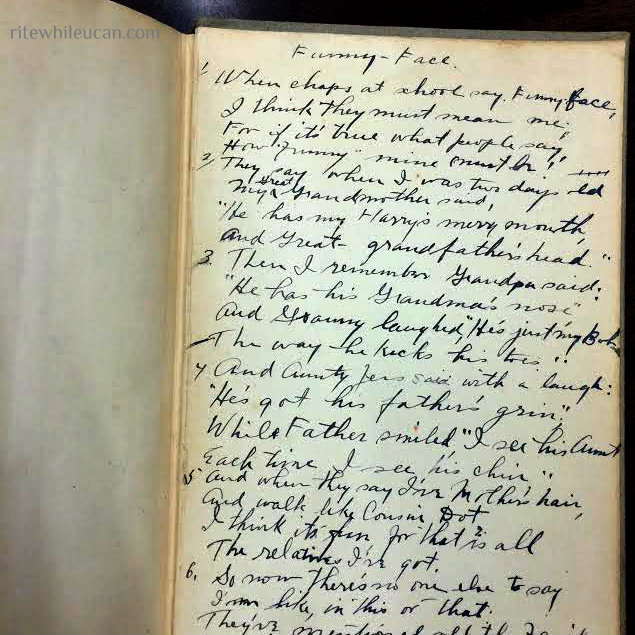 ritewhileucan.com
Funny-Face.
1, When chaps at school say, Funny face,
I think they must mean me;
For if it's true what people say,
How "Funny" mine must be!
2, They say when I was two days old
My Great Grandmother said,
"He has my Harry's merry mouth,
And Great-grandfather's head."
3. Then I remember Grandpa said:
"He has his Grandma's nose"
And Granny laughed, "He's just my Bob
The way he kicks his toes."
4 And Aunty Jess said with a laugh:
"He's got his father's grin;"
While Father smiled "I see his Aunt
Each time I see his chin"
5 And when they say I've Mother's hair,
And walk like Cousin Dot
I think it's fun for that is all
The relatives I've got.
6. So now there's no one else to say
I'm like, in this or that:
They've mentioned all the